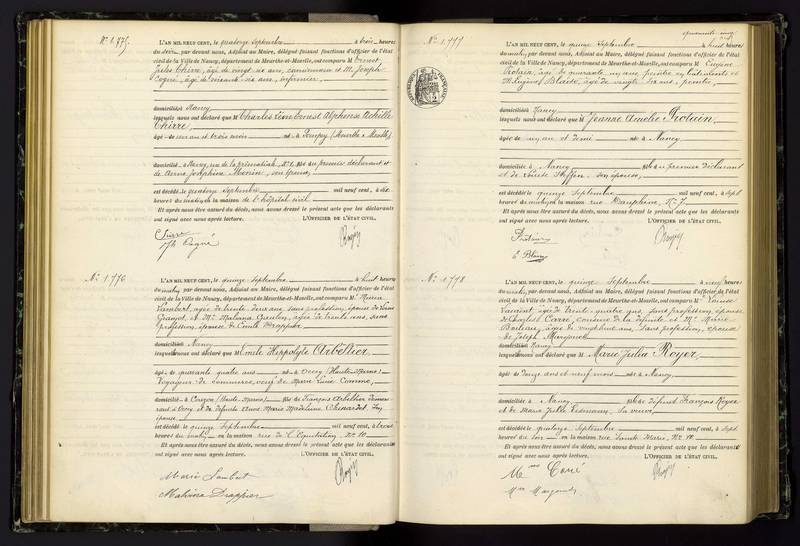 N° 1.775.
L'AN MIL NEUF CENT, le quatorze Septembre à trois heures
du soir, par devant nous, Adjoint au Maire, délégué faisant fonctions d'officier de l'état
civil de la Ville de Nancy, département de Meurthe-et-Moselle, ont comparu M Ernest
Jules Chirre, âgé de vingt six ans, camionneur et M. Joseph
Cogné, âgé de ans, infirmier,
domiciliés à Nancy
lesquels nous ont déclaré que M Charles Léon Ernest Alphonse Achille
Chirre,
âgé de un an et trois mois né à Pompey (Meurthe & Moselle)
domicilié à Nancy, rue de la Primatiale, N° fils du premier déclarant et
de Joséphine son épouse,
est décédé le quatorze Septembre mil neuf cent, à dix
heures du matin en la maison de l'hôpital civil
Et après nous être assuré du décès, nous avons dressé le présent acte que les déclarants
ont signé avec nous après lecture. L'OFFICIER DE L'ÉTAT CIVIL,
Chirre
Jh Cogné
N° 1.776
L'AN MIL NEUF CENT, le quinze Septembre à huit heures
du matin, par devant nous, Adjoint au Maire, délégué faisant fonctions d'officier de l'état
civil de la Ville de Nancy, département de Meurthe-et-Moselle, ont comparu M Maria
Lambert, âgée de trente ans, sans profession, épouse de Louis
et Me âgée de trente ans, sans
profession, épouse de Emile Drappier
domiciliées à Nancy
lesquelles nous ont déclaré que M Emile Hippolyte Arbellier,
âgé de quarante quatre ans né à Occey (Haute-Marne)
Voyageur de commerce, veuf de Marie
domicilié à (Haute-Marne) fils de François Arbellier
à Occey et de défunte Anne Marie Madeleine son
épouse
est décédé le quinze Septembre mil neuf cent, à trois
heures du matin en la maison rue de l'Equitation, N° 10
Et après nous être assuré du décès, nous avons dressé le présent acte que les déclarants
ont signé avec nous après lecture. L'OFFICIER DE L'ÉTAT CIVIL,
Maria Lambert
Drappier
N° 1.777
L'AN MIL NEUF CENT, le quinze Septembre à huit heures
du matin, par devant nous, Adjoint au Maire, délégué faisant fonctions d'officier de l'état
civil de la Ville de Nancy, département de Meurthe-et-Moselle, ont comparu M Eugène
âgé de quarante un ans, peintre en bâtiments et
M. Eugène âgé de vingt six ans, peintre,
domiciliés à Nancy
lesquels nous ont déclaré que M Jeanne Amélie
âgée de un an et demi née à Nancy
domiciliée à Nancy fille du premier déclarant
et de Louise Steffen, son épouse,
est décédée le quinze Septembre mil neuf cent, à sept
heures du matin en la maison rue N° 7.
Et après nous être assuré du décès, nous avons dressé le présent acte que les déclarants
ont signé avec nous après lecture. L'OFFICIER DE L'ÉTAT CIVIL,
N° 1.778
L'AN MIL NEUF CENT, le quinze Septembre à neuf heures
du matin, par devant nous, Adjoint au Maire, délégué faisant fonctions d'officier de l'état
civil de la Ville de Nancy, département de Meurthe-et-Moselle, ont comparu M Louise
âgée de trente quatre ans, sans profession, épouse
de Charles Carré, cousine de la défunte et Me Marie
âgée de vingt huit ans, sans profession, épouse
de Joseph
domiciliées à Nancy
lesquelles nous ont déclaré que M Marie Julia Royer,
âgée de onze ans et neuf mois née à Nancy
domiciliée à Nancy fille de défunt François Royer
et de Marie sa veuve
est décédée le quatorze Septembre mil neuf cent, à sept
heures du soir en la maison rue Sainte Marie, N° 10
Et après nous être assuré du décès, nous avons dressé le présent acte que les déclarants
ont signé avec nous après lecture. L'OFFICIER DE L'ÉTAT CIVIL,
Mme Carré
Mme